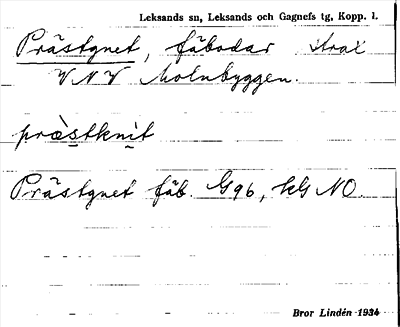 Leksands sn, Leksands och Gagnefs tg, Kopp. l.
Prästgnet, fäbodar strax
VNV Molnbyggen.
præ̀stknit
Prästgnet fäb. G96, kG NO.
Bror Lindén 1934